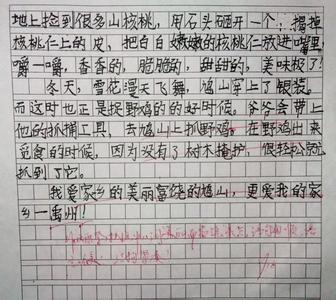 地上捡到很多山核桃，用石头砸开一个；揭掉
核桃仁上的皮，把白白嫩嫩的核桃仁放进嘴里
嚼一嚼，香香的，脆脆的，甜甜的，美味极了！
冬天，雪花漫天飞舞，鸠山穿上了银装。
而这时也正是捉野鸡的的好时候。爷爷会带上
他的抓捕工具，去鸠山上抓野鸡。在野鸡出来
觅食的时候，因为没有了树木掩护，很轻松就
抓到了它。
我爱家乡的美丽富绕的鸠山，更爱我的家
乡一禹州！